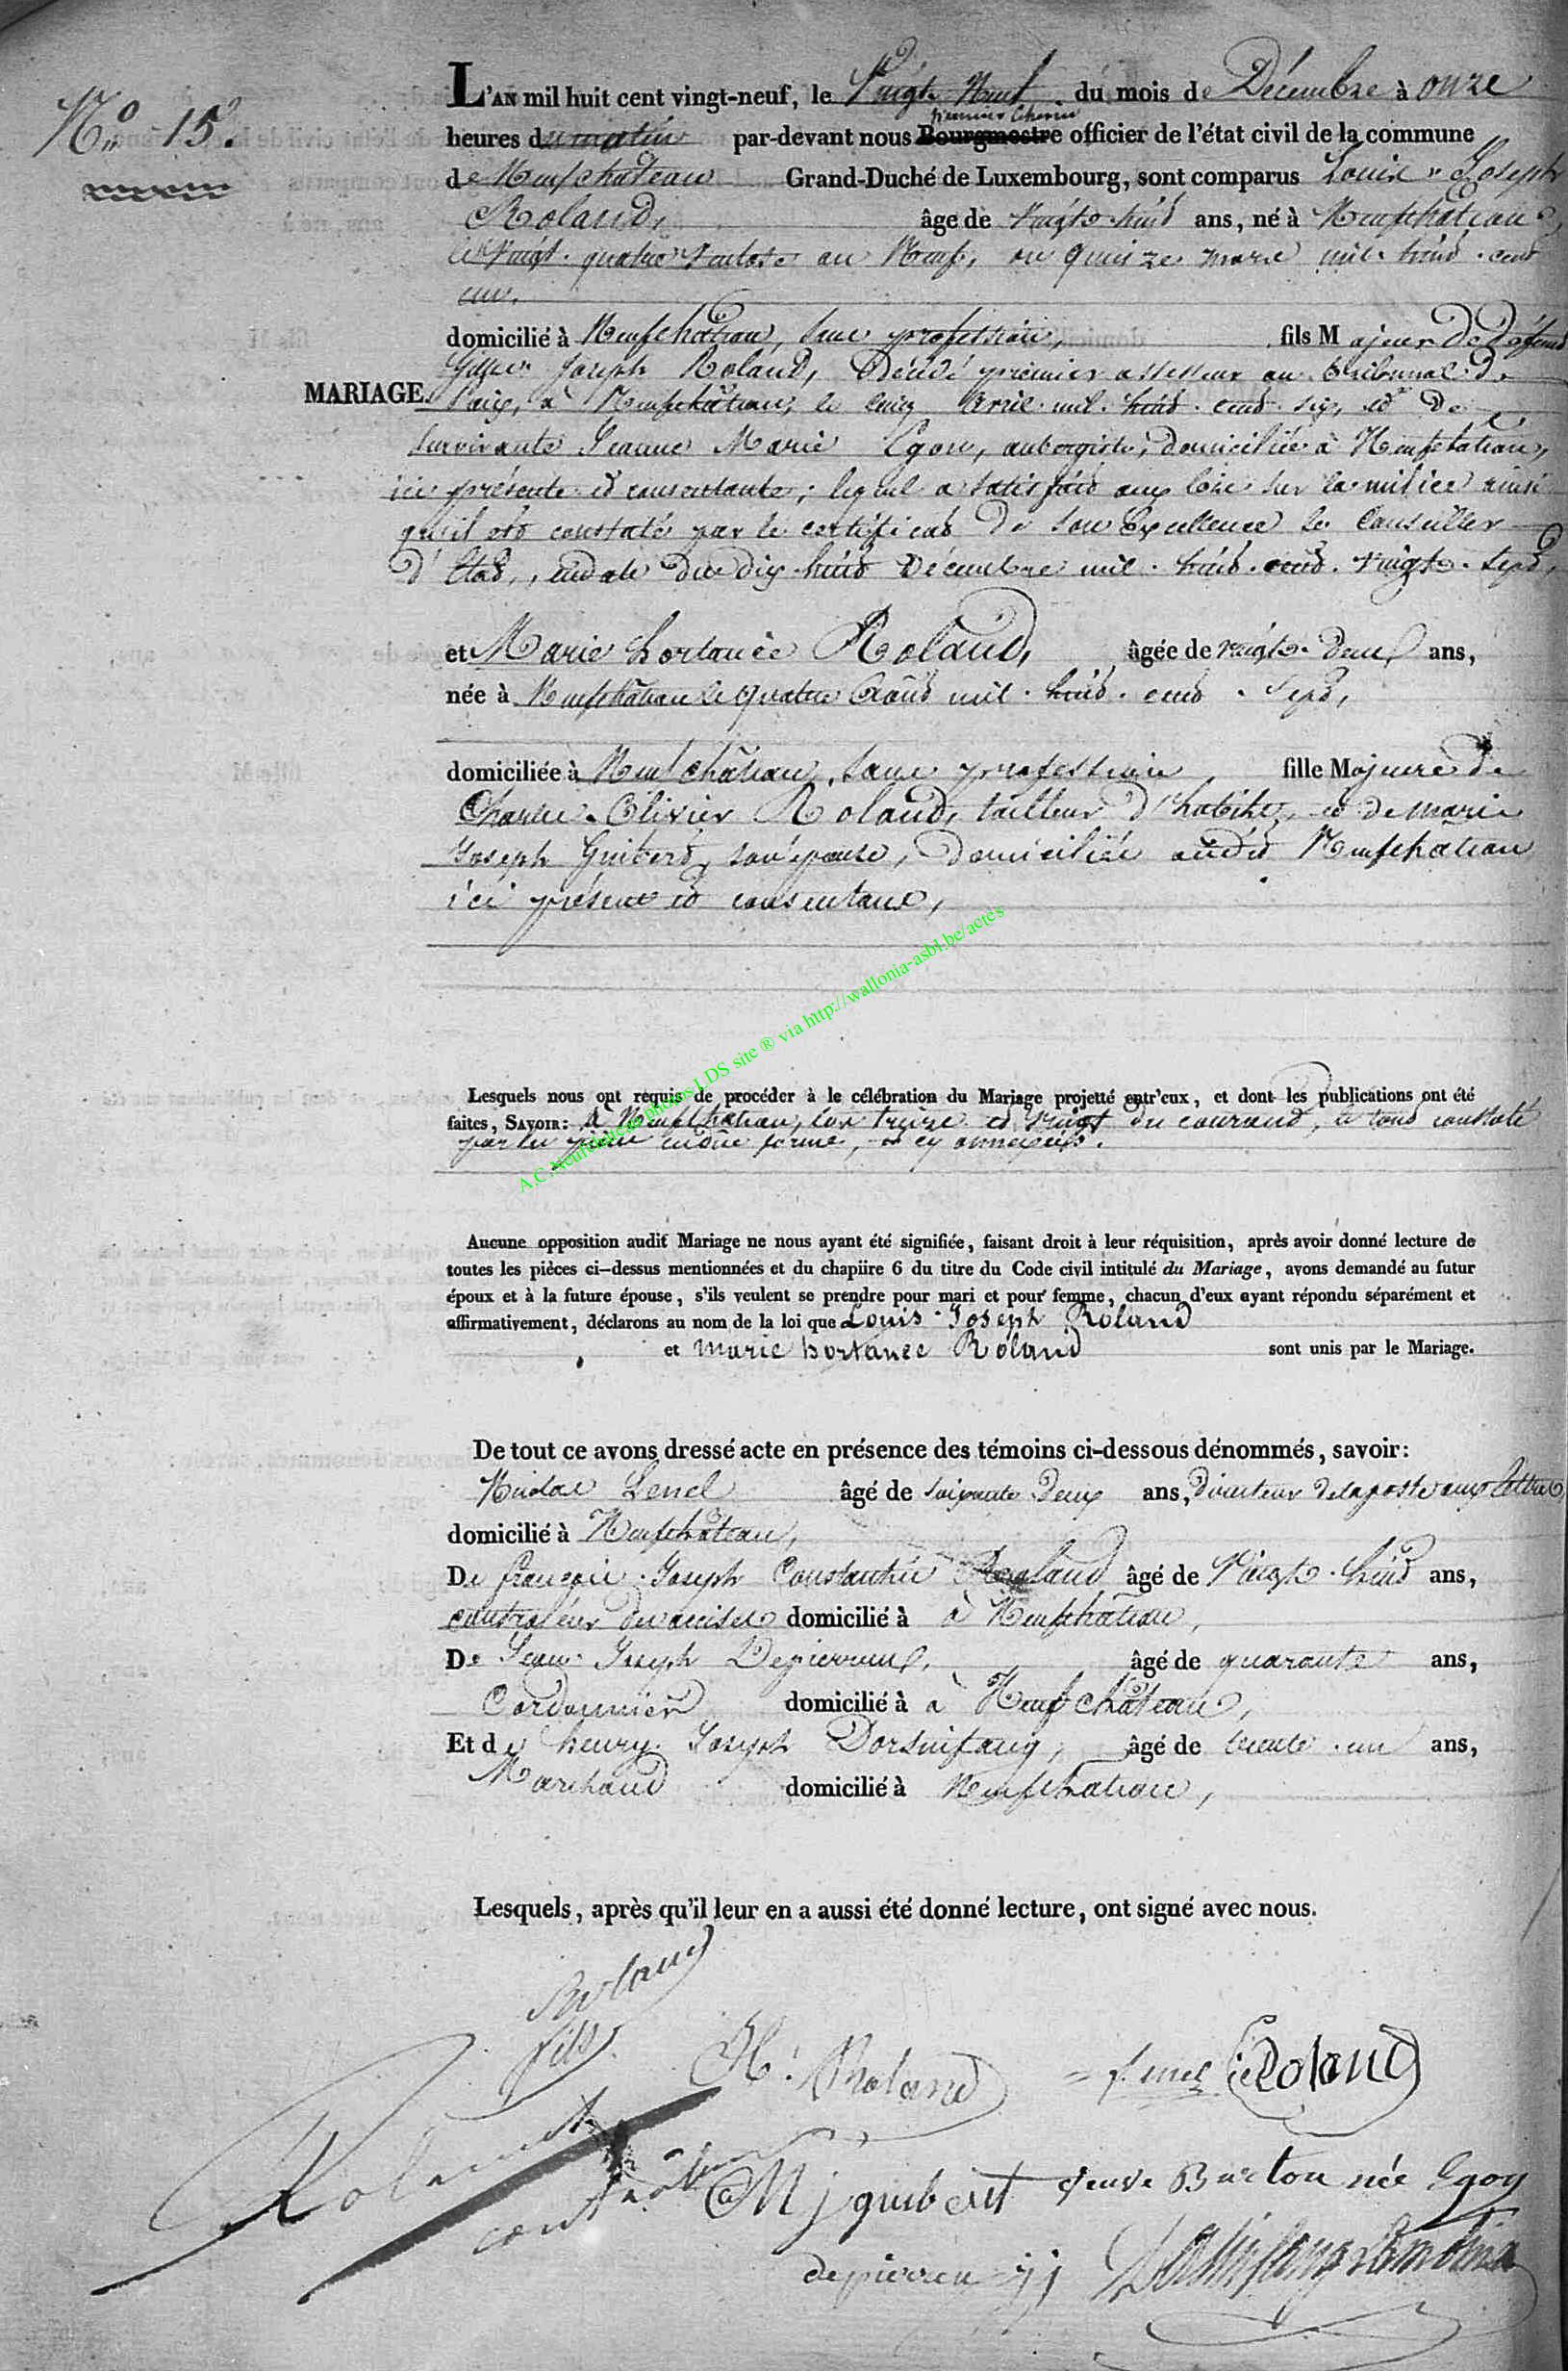 N.o 15.
L'AN mil huit cent vingt-neuf, le Vingt Neuf du mois de Décembre à onze
premier Echevin
heures du matin par-devant nous Bourgmestre officier de l'état civil de la commune
de Neufchateau Grand-Duché de Luxembourg, sont comparus Louis Joseph
Roland, âge de vingt-huit ans, né à Neufchateau
le vingt-quatre Ventose an Neuf, ou quinze mars mil-huit-cent
un,
domicilié à Neufchateau, sans profession, fils Majeur de défunt
Joseph Roland, Décédé premier assesseur au tribunal de
MARIAGE.
Paix, à Neufchâteau, le cinq Avril mil-huit-cent-six, et de
survivante Jeanne Marie Egon, aubergiste, domiciliée à Neufchateau,
ici présente et consentante; lequel a satisfait aux lois sur la milice ainsi
qu'il est constaté par le certificat de son Excellence le Conseiller
d'Etat, en date du dix-huit Décembre mil-huit-cent-vingt-sept,
et Marie hortance Roland, âgée de vingt-deux ans,
née à Neufchâteau le quatre Août mil-huit-cent-sept,
domiciliée à Neufchâteau, sans profession, fille Majeure de
Charles Olivier Roland, tailleur d'habits, et de marie
Joseph Guibert, son épouse, domiciliés audit Neufchateau
ici présent et consentans,
Lesquels nous ont requis de procéder à le célébration du Mariage projetté entr'eux, et dont les publications ont été
faites, SAVOIR: à Neufchateau, les treize et vingt du courant, le tout constaté
par les pièces en due forme, et cy annexées.
Aucune opposition audit Mariage ne nous ayant été signifiée, faisant droit à leur réquisition, après avoir donné lecture de
toutes les pièces ci-dessus mentionnées et du chapiire 6 du titre du Code civil intitulé du Mariage, avons demandé au futur
époux et à la future épouse, s'ils veulent se prendre pour mari et pour femme, chacun d'eux ayant répondu séparément et
affirmativement, déclarons au nom de la loi que Louis-Joseph Roland
et marie hortance Roland sont unis par le Mariage.
De tout ce avons dressé acte en présence des témoins ci-dessous dénommés, savoir:
Nicolas Lenel âgé de soixante-deux ans, directeur de la poste aux lettres
domicilié à Neufchâteau,
De françois-Joseph Constantin Roland âgé de Vingt-huit ans,
controleur des accises domicilié à à Neufchâteau,
De Jean-Joseph Depierreux, âgé de quarante ans,
Cordonnier domicilié à à Neufchâteau,
Et de henry Joseph Dorsinfang, âgé de trente-un ans,
Marchand domicilié à Neufchateau,
Lesquels, après qu'il leur en a aussi été donné lecture, ont signé avec nous.
Roland
fils
H. Roland
Roland
Roland
M j guibert
veuve Burton née Egon
depierreu jj
A.C. Neufchateau photos LDS site ® via http://wallonia-asbl.be/actes